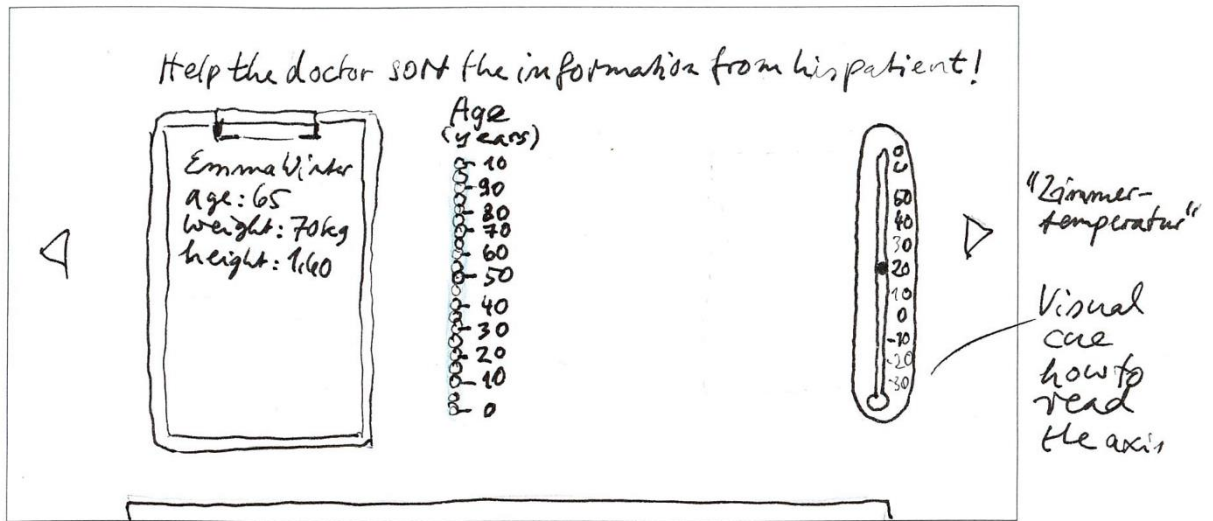 Help the doctor sort the information from his patient!
Emma Winter
age: 65
weight: 70kg
height: 1.60
Age
(years)
10
90
80
70
60
50
40
30
20
10
0
50
40
30
20
10
0
-10
-20
-30
"Zimmer-
temperatur"
Visual
cue
how to
read
the axis